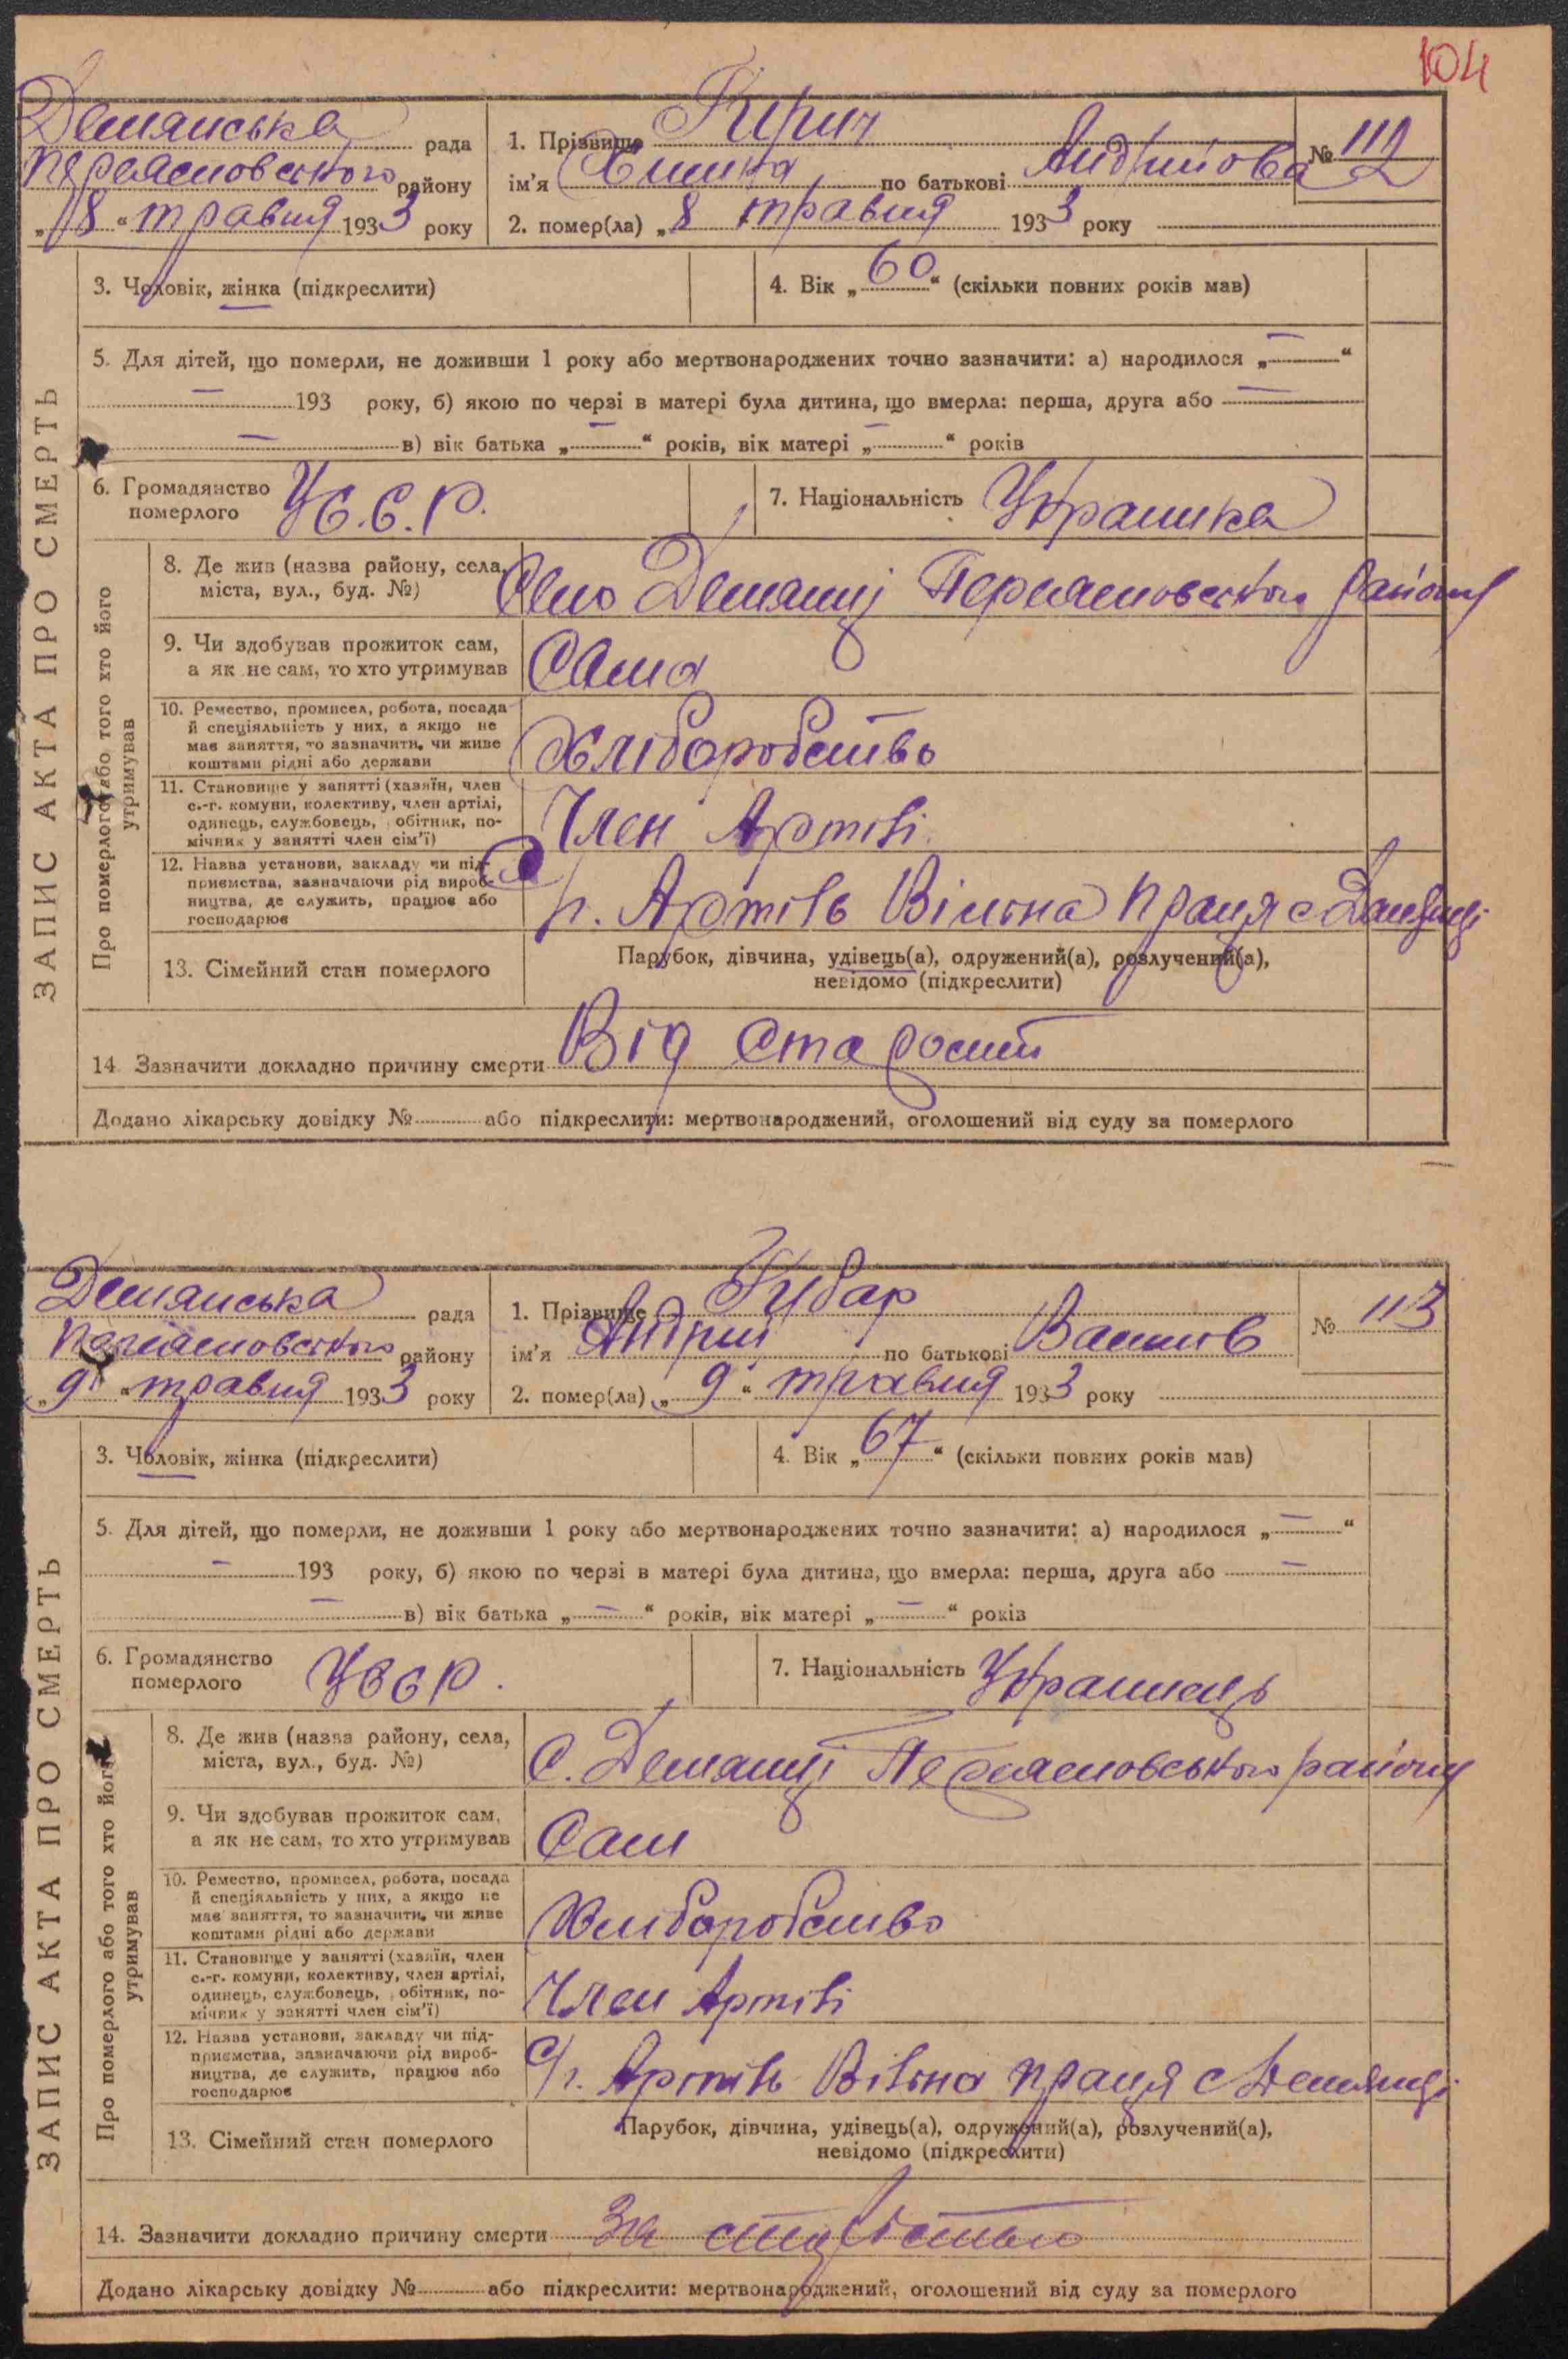 104
Демянська рада
Переяславського району
„8“ травня 1933 року
1. Прізвище Кирич
№ 112
ім'я по батькові Андрийова
2. помер(ла) „8 травня 1933 року
3. Чоловік, жінка (підкреслити)
4. Вік „60“ (скільки повних років мав)
5. Для дітей, що померли, не доживши 1 року або мертвонароджених точно зазначити: а) народилося „—“
— 193 року, б) якою по черзі в матері була дитина, що вмерла: перша, друга або —
— в) вік батька „—“ років, вік матері „—“ років
6. Громадянство
померлого
У.С.С.Р.
7. Національність Украинка
ЗАПИС АКТА ПРО СМЕРТЬ
Про померлого або того хто його
утримував
8. Де жив (назва району, села,
міста, вул., буд. №)
Село Демянці Переяславського району
9. Чи здобував прожиток сам,
а як не сам, то хто утримував
Сама
10. Ремество, промисел, робота, посада
й спеціяльність у них, а якщо не
має заняття, то зазначити, чи живе
коштами рідні або держави
Хліборобство
11. Становище у занятті (хазяїн, член
с.-г. комуни, колективу, член артілі,
одинець, службовець, обітник, по-
мічник у занятті член сім'ї)
Член Артілі
12. Назва установи, закладу чи під-
приємства, зазначаючи рід вироб-
ництва, де служить, працює або
господарює
с/г. Артіль Вільна праця с Демянці
13. Сімейний стан померлого
Парубок, дівчина, удівець(а), одружений(а), розлучений(а),
невідомо (підкреслити)
14. Зазначити докладно причину смерти Від старости
Додано лікарську довідку № або підкреслити: мертвонароджений, оголошений від суду за померлого
Демянська рада
Переяславського району
„9“ травня 1933 року
1. Прізвище Губар
№ 113
ім'я Андрий по батькові Васил­ів
2. помер(ла) „9“ травня 1933 року
3. Чоловік, жінка (підкреслити)
4. Вік „67“ (скільки повних років мав)
5. Для дітей, що померли, не доживши 1 року або мертвонароджених точно зазначити: а) народилося „—“
— 193 року, б) якою по черзі в матері була дитина, що вмерла: перша, друга або —
— в) вік батька „—“ років, вік матері „—“ років
6. Громадянство
померлого
УССР.
7. Національність Украинець
ЗАПИС АКТА ПРО СМЕРТЬ
Про померлого або того хто його
утримував
8. Де жив (назва району, села,
міста, вул., буд. №)
С. Демянці Переяславського району
9. Чи здобував прожиток сам,
а як не сам, то хто утримував
Сам
10. Ремество, промисел, робота, посада
й спеціяльність у них, а якщо не
має заняття, то зазначити, чи живе
коштами рідні або держави
Хлиборобство
11. Становище у занятті (хазяїн, член
с.-г. комуни, колективу, член артілі,
одинець, службовець, обітник, по-
мічник у занятті член сім'ї)
Член Артілі
12. Назва установи, закладу чи під-
приємства, зазначаючи рід вироб-
ництва, де служить, працює або
господарює
с/г. Артіль Вільна праця с Демянці
13. Сімейний стан померлого
Парубок, дівчина, удівець(а), одружений(а), розлучений(а),
невідомо (підкреслити)
14. Зазначити докладно причину смерти За старістью
Додано лікарську довідку № або підкреслити: мертвонароджений, оголошений від суду за померлого